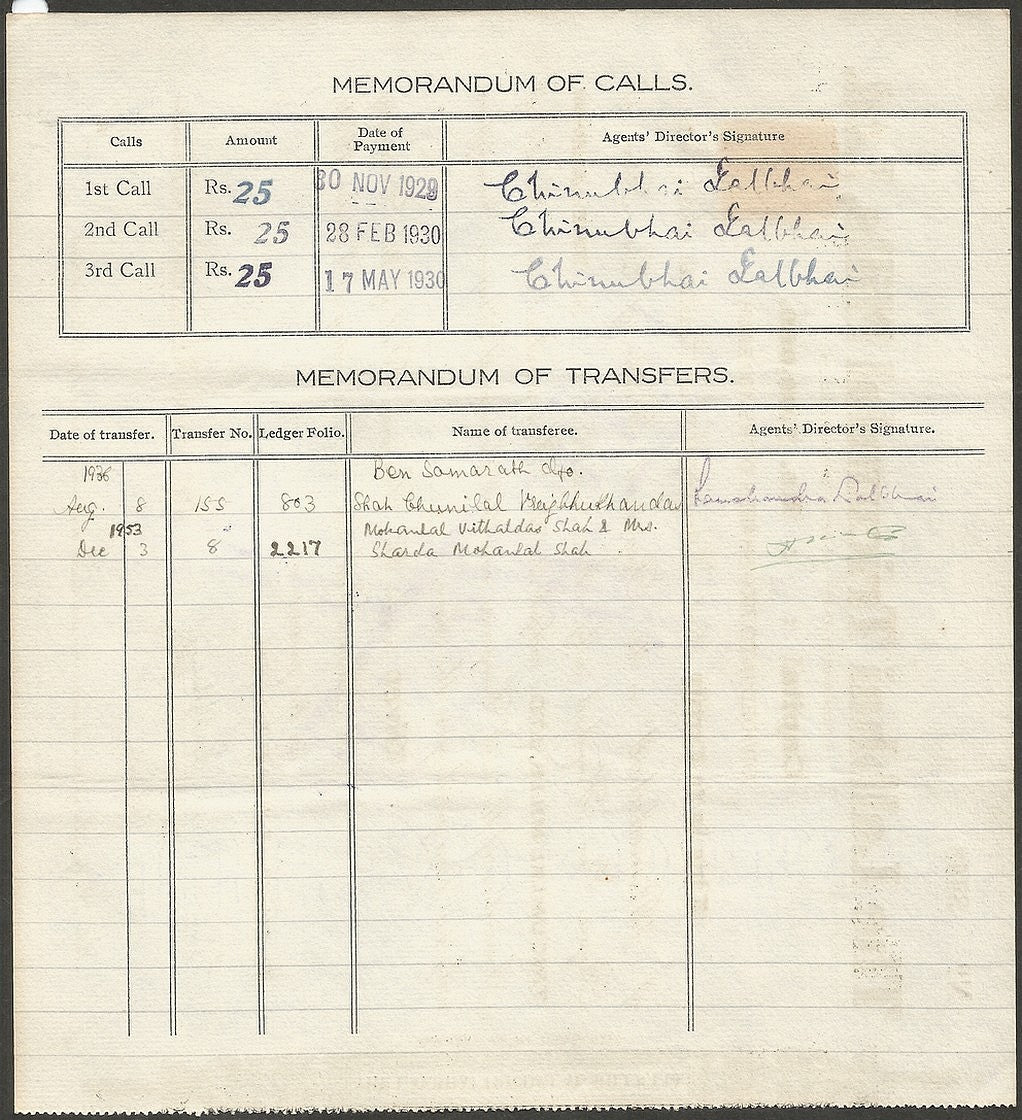 MEMORANDUM OF CALLS.
Calls Amount Date of Payment Agents' Director's Signature
1st Call Rs. 25 30 NOV 1929 Chinubhai Lalbhai
2nd Call Rs. 25 28 FEB 1930 Chinubhai Lalbhai
3rd Call Rs. 25 17 MAY 1930 Chinubhai Lalbhai
MEMORANDUM OF TRANSFERS.
Date of transfer. Transfer No. Ledger Folio. Name of transferee. Agents' Director's Signature.
1936 Ben Samarath d/o.
Aug. 8 155 803 Shah Chunilal
1953 Mohanlal Vithaldas Shah & Mrs.
Dec 3 8 2217 Sharda Mohanlal Shah